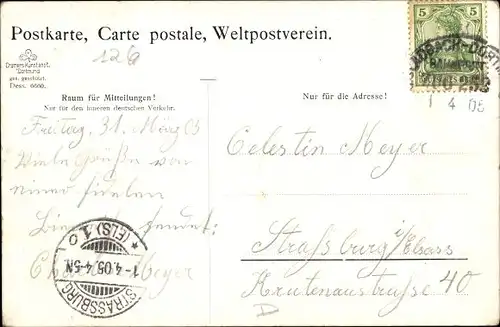 Postkarte, Carte postale, Weltpostverein.
126
Kunstanst.
Dortmund
ges. geschützt.
Dess. 6660.
5
5
Raum für Mitteilungen!
Nur für den inneren deutschen Verkehr.
Nur für die Adresse!
BAHNPOST
1 4 05
Freitag, 31. März 05
Viele Grüße von
einer fidelen
sendet:
Meyer
STRASSBURG
1-4.05.4-5N.
* (ELS) 1 o
Celestin Meyer
Straßburg i/Elsass
Krutenaustraße 40